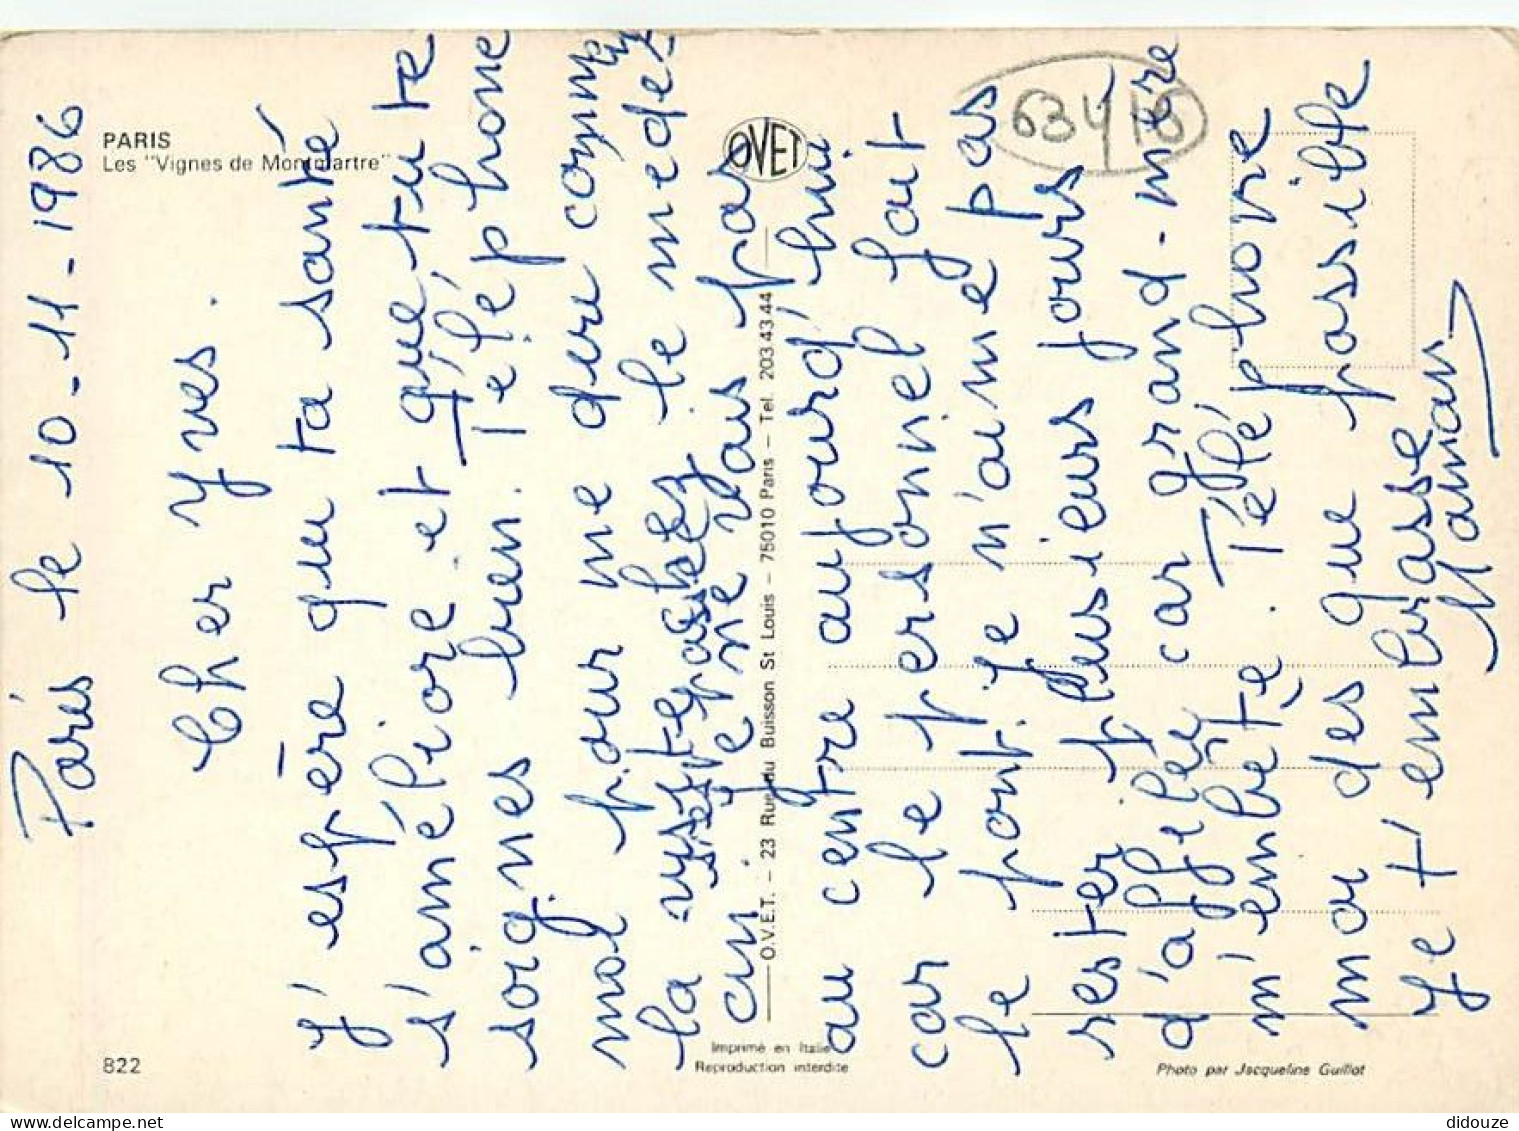 PARIS
Les "Vignes de Montmartre"
OVET
63418
Paris le 10-11-1986
Cher Yves.
J'espère que ta santé
s'améliore et que tu te
soignes bien. Téléphone
moi pour me dire comm
la visite chez le mede-
cin. Je ne vais pas
au centre aujourd'hui
car le personnel fait
le pont. Je n'aime pas
rester plusieurs jours
d'affilée car grand-mère
m'embête. Téléphone
moi des que possible
Je t'embrasse
Maman
O.V.E.T. – 23 Rue du Buisson St Louis – 75010 Paris – Tel. 203 43 44
822
Imprimé en Italie
Reproduction interdite
Photo par Jacqueline Guillot
delcampe.net
didouze